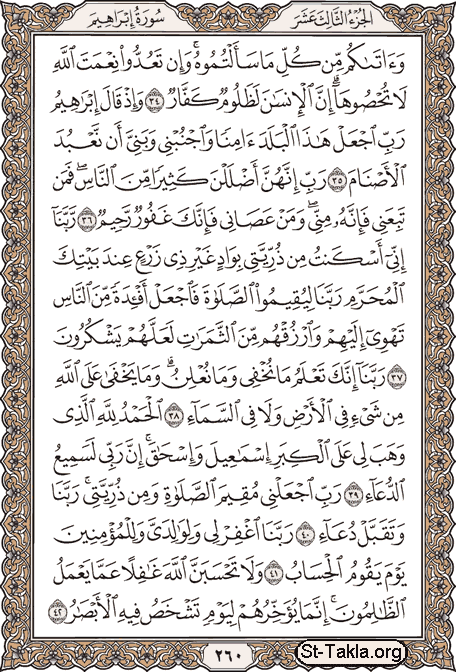 الجزء الثالث عشر
سورة إبراهيم
وَءَاتَىٰكُم مِّن كُلِّ مَا سَأَلْتُمُوهُ ۚ وَإِن تَعُدُّوا۟ نِعْمَتَ ٱللَّهِ
لَا تُحْصُوهَآ ۗ إِنَّ ٱلْإِنسَٰنَ لَظَلُومٌ كَفَّارٌ ٣٤ وَإِذْ قَالَ إِبْرَٰهِيمُ
رَبِّ ٱجْعَلْ هَٰذَا ٱلْبَلَدَ ءَامِنًا وَٱجْنُبْنِى وَبَنِىَّ أَن نَّعْبُدَ
ٱلْأَصْنَامَ ٣٥ رَبِّ إِنَّهُنَّ أَضْلَلْنَ كَثِيرًا مِّنَ ٱلنَّاسِ ۖ فَمَن
تَبِعَنِى فَإِنَّهُۥ مِنِّى ۖ وَمَنْ عَصَانِى فَإِنَّكَ غَفُورٌ رَّحِيمٌ ٣٦ رَّبَّنَآ
إِنِّىٓ أَسْكَنتُ مِن ذُرِّيَّتِى بِوَادٍ غَيْرِ ذِى زَرْعٍ عِندَ بَيْتِكَ
ٱلْمُحَرَّمِ رَبَّنَا لِيُقِيمُوا۟ ٱلصَّلَوٰةَ فَٱجْعَلْ أَفْـِٔدَةً مِّنَ ٱلنَّاسِ
تَهْوِىٓ إِلَيْهِمْ وَٱرْزُقْهُم مِّنَ ٱلثَّمَرَٰتِ لَعَلَّهُمْ يَشْكُرُونَ
٣٧ رَبَّنَآ إِنَّكَ تَعْلَمُ مَا نُخْفِى وَمَا نُعْلِنُ ۗ وَمَا يَخْفَىٰ عَلَى ٱللَّهِ
مِن شَىْءٍ فِى ٱلْأَرْضِ وَلَا فِى ٱلسَّمَآءِ ٣٨ ٱلْحَمْدُ لِلَّهِ ٱلَّذِى
وَهَبَ لِى عَلَى ٱلْكِبَرِ إِسْمَٰعِيلَ وَإِسْحَٰقَ ۚ إِنَّ رَبِّى لَسَمِيعُ
ٱلدُّعَآءِ ٣٩ رَبِّ ٱجْعَلْنِى مُقِيمَ ٱلصَّلَوٰةِ وَمِن ذُرِّيَّتِى ۚ رَبَّنَا
وَتَقَبَّلْ دُعَآءِ ٤٠ رَبَّنَا ٱغْفِرْ لِى وَلِوَٰلِدَىَّ وَلِلْمُؤْمِنِينَ
يَوْمَ يَقُومُ ٱلْحِسَابُ ٤١ وَلَا تَحْسَبَنَّ ٱللَّهَ غَٰفِلًا عَمَّا يَعْمَلُ
ٱلظَّٰلِمُونَ ۚ إِنَّمَا يُؤَخِّرُهُمْ لِيَوْمٍ تَشْخَصُ فِيهِ ٱلْأَبْصَٰرُ ٤٢
٢٦٠
St-Takla.org